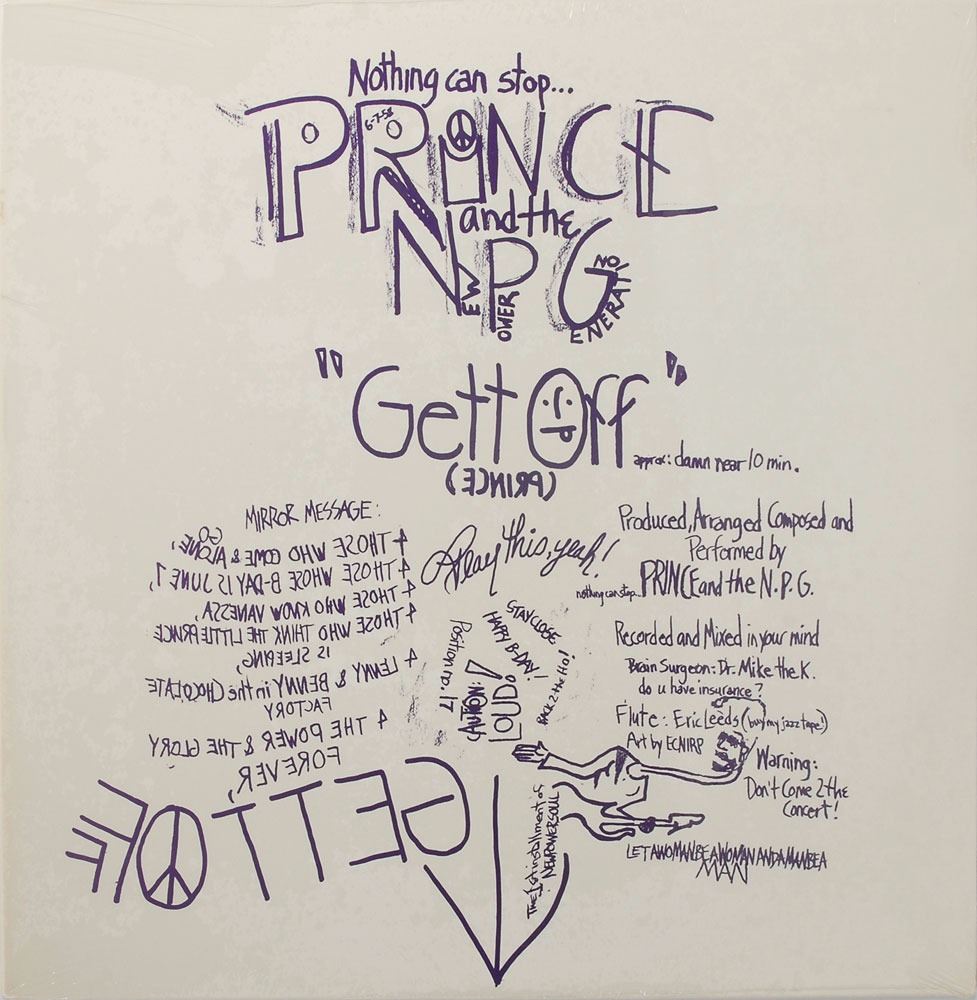 Nothing can stop...
PRINCE
6-7-58
and the
NPG
NEW POWER GENERATION
"Gett Off"
approx: damn near 10 min.
(PRINCE)
MIRROR MESSAGE:
4 THOSE WHO COME & GO ALONE,
4 THOSE WHOSE B-DAY IS JUNE 7,
4 THOSE WHO KNOW VANESSA,
4 THOSE WHO THINK THE LITTLE PRINCE
IS SLEEPING,
4 LENNY & BENNY in the CHOCOLATE
FACTORY
4 THE POWER & THE GLORY
FOREVER,
GETT OFF
Play this, yeah!
STAY CLOSE
HAPPY B-DAY!
Position no. 17
CAUTION:
LOUD!
BACK 2 the Ho!
The 1st installment of
NEWPOWERSOUL
Produced, Arranged Composed and
Performed by
nothing can stop... PRINCE and the N.P.G.
Recorded and Mixed in your mind
Brain Surgeon: Dr. Mike the K.
do u have insurance?
Flute: Eric Leeds (buy my jazz tape!)
Art by ECNIRP
Warning:
Don't Come 2 the
Concert!
LET A WOMAN BE A WOMAN AND A MAN BE A
MAN